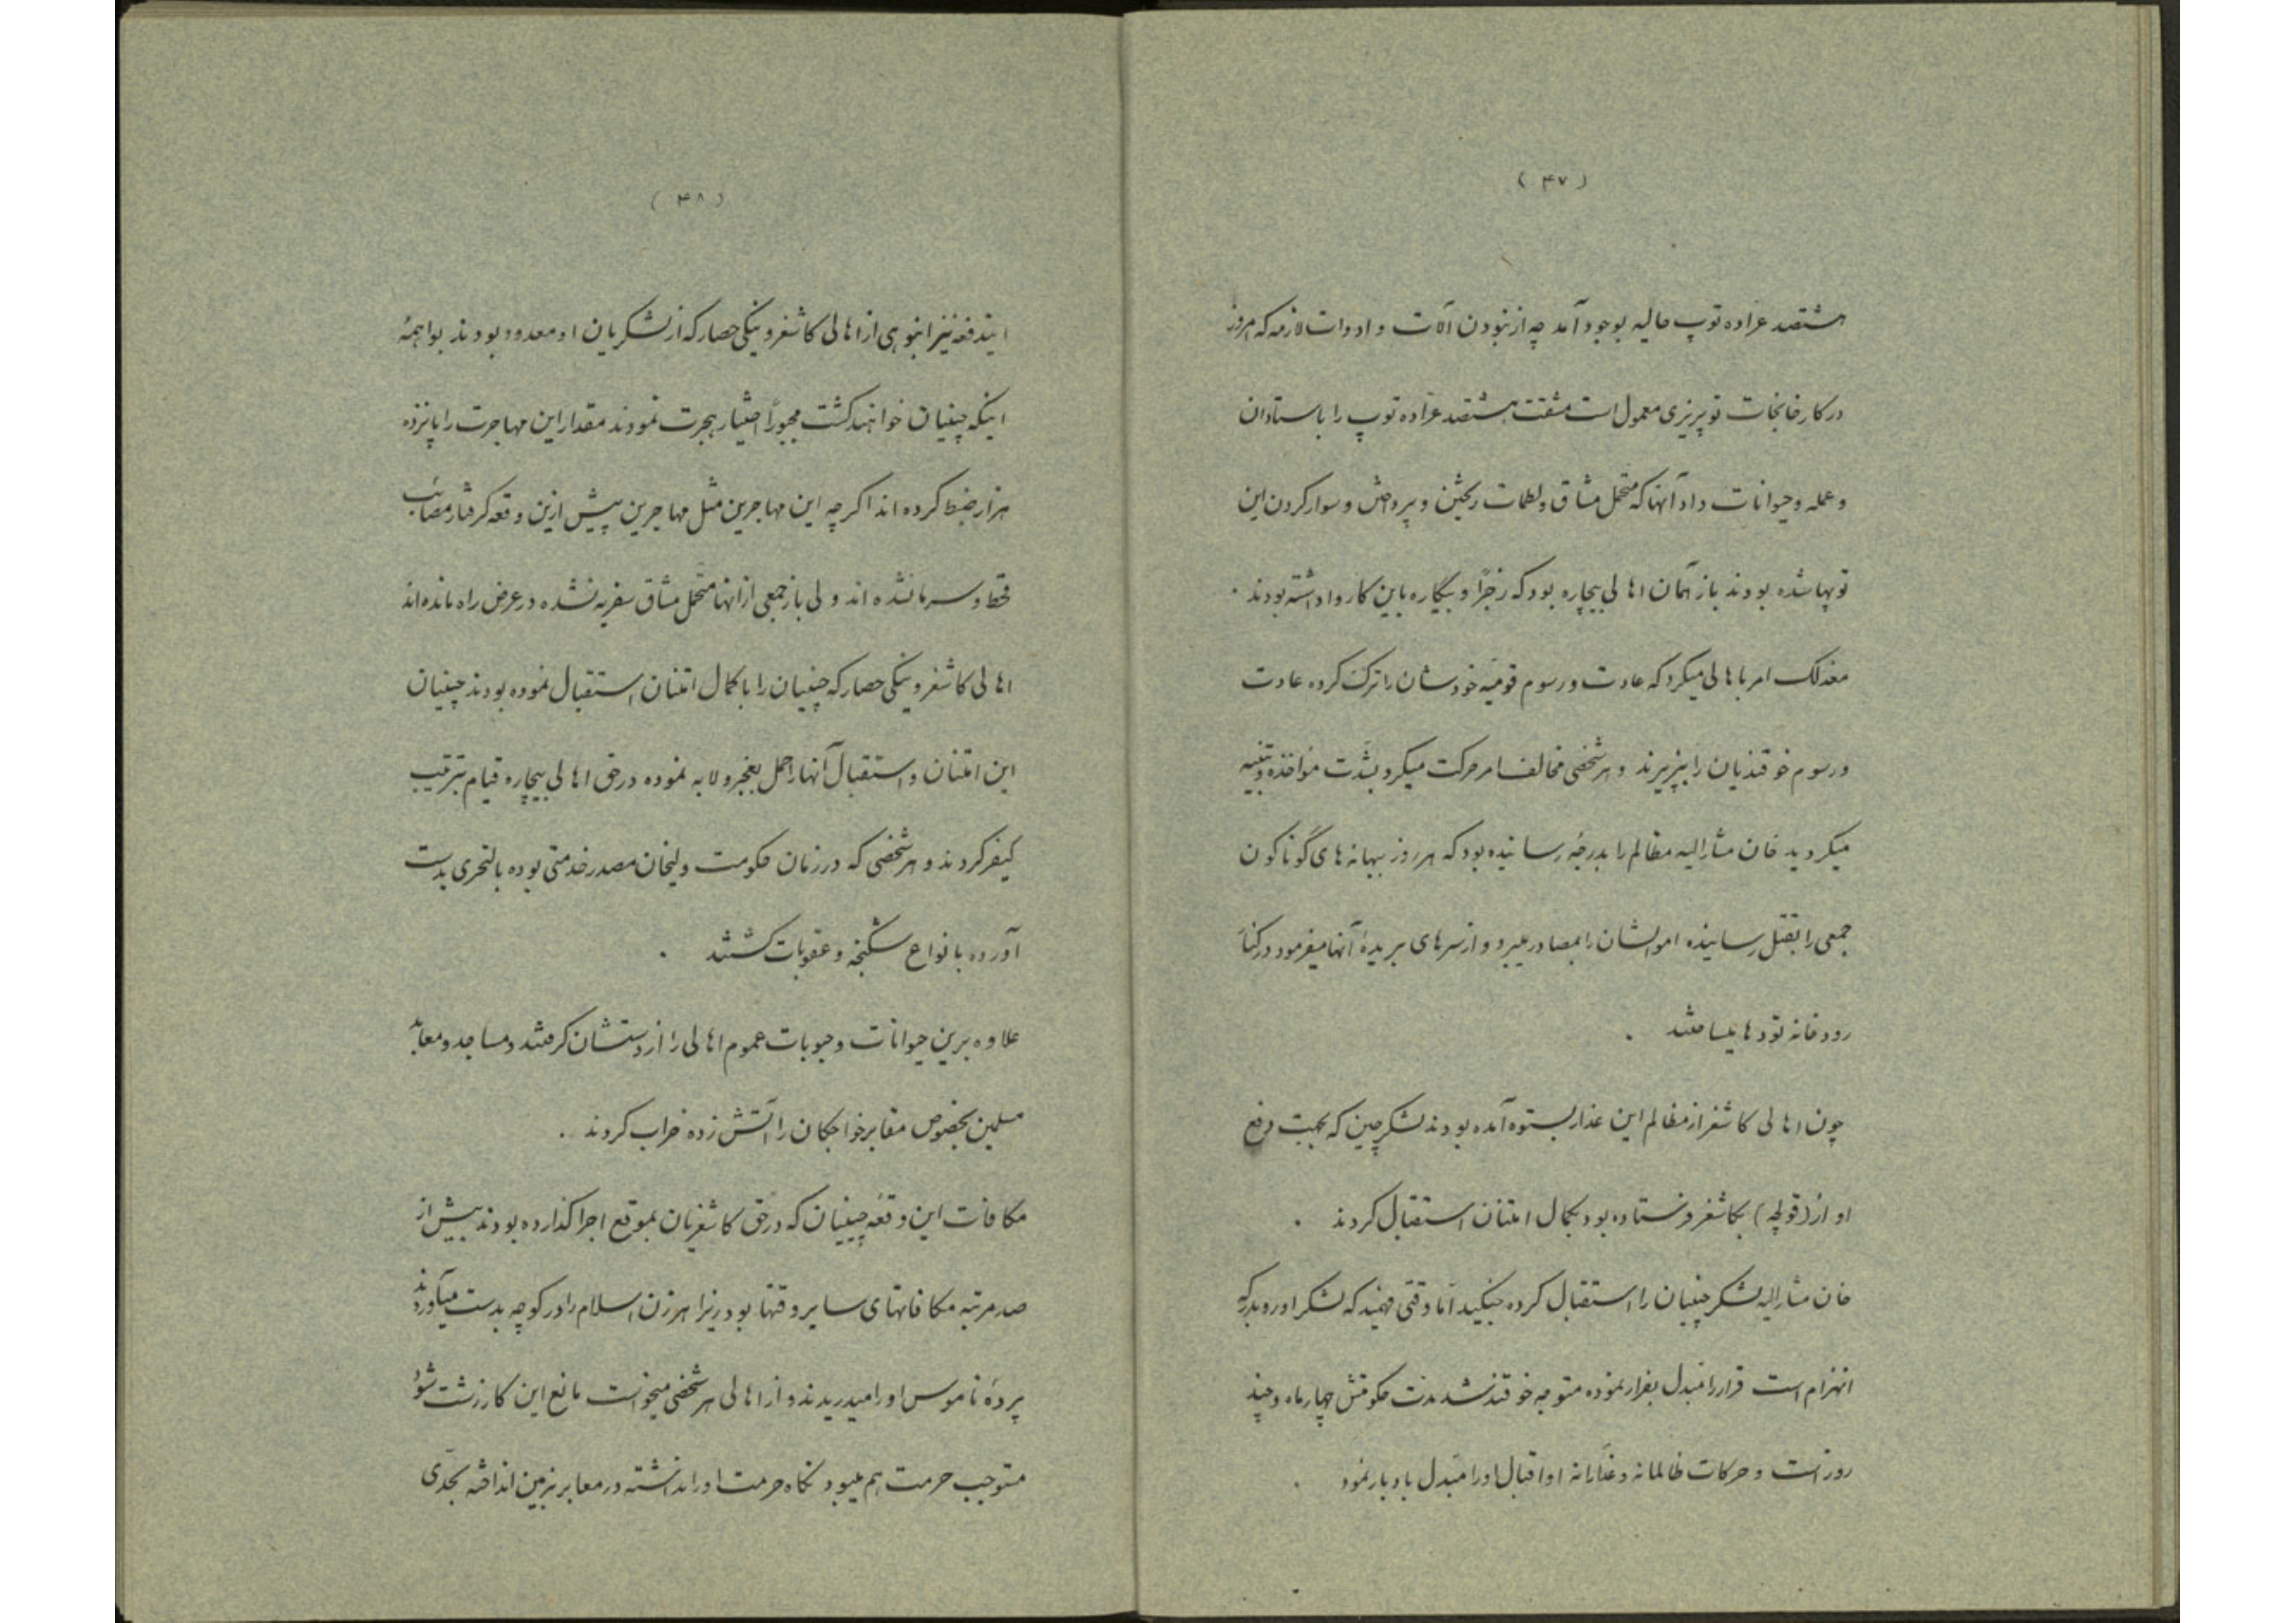 ( ۴۷ )
هشتصد عراده توپ حالیه بوجود آمد چه از نبودن آلات و ادوات لازمه که امروز
در کارخانجات توپریزی معمول است مشقت هشتصد عراده توپ را باستادان
و عمله و حیوانات داد آنها که متحمل مشاق و لطمات ریختن و پرداختن و سوار کردن این
توپها شده بودند باز همان اهالی بیچاره بود که زجراً و بیگاره باین کار واداشته بودند .
معذلک امر باهالی میکرد که عادت و رسوم قومیه خودشان را ترک کرده عادت
و رسوم خوقندیان را بپزیرند و هر شخصی مخالف امر حرکت میکرد بشدت مؤاخذه و تنبیه
میکردید خان مشارالیه مظالم را بدرجهٔ رسانیده بود که هر روز ببهانه های گوناگون
جمعی را بقتل رسانیده اموالشان را بمصادر میبرد و از سرهای بریدهٔ آنها میفرمود در کنار
رودخانه تودها میساختند .
چون اهالی کاشغر از مظالم این غدار بستوه آمده بودند لشکر چین که بجهت دفع
او از (قولچه) بکاشغر فرستاده بود بکمال امتنان استقبال کردند .
خان مشارالیه لشکر چینیان را استقبال کرده جنگید اما وقتی فهمید که لشکر او رو بدرکه
انهزام است قرار را مبدل بفرار نموده متوجه خوقند شد مدت حکومتش چهار ماه و چند
روز است و حرکات ظالمانه و غدارانه او اقبال او را مبدل بادبار نمود .
( ۴۸ )
ایندفعه نیز انبوهی از اهالی کاشغر و ینگی حصار که از لشکریان او معدود بودند بواهمهٔ
اینکه چینیان خواهند کشت مجبوراً اختیار هجرت نمودند مقدار این مهاجرت را پانزده
هزار ضبط کرده اند اکر چه این مهاجرین مثل مهاجرین پیش ازین وقعه کرفتار مصائب
قحط و سرما نشده اند ولی باز جمعی از انها متحمل مشاق سفریه نشده در عرض راه مانده اند
اهالی کاشغر و ینگی حصار که چینیان را با کمال امتنان استقبال نموده بودند چینیان
این امتنان و استقبال آنها را حمل بعجز و لابه نموده در حق اهالی بیچاره قیام بترتیب
کیفر کردند و هر شخصی که در زمان حکومت ولیخان مصدر خدمتی بوده بالتحری بدست
آورده بانواع شکنجه و عقوبات کشتند .
علاوه برین حیوانات و حبوبات عموم اهالی را از دستشان کرفتند و مساجد و معابد
مسلمین بخصوص مقابر خواجکان را آتش زده خراب کردند .
مکافات این وقعه چینیان که در حق کاشغریان بموقع اجرا کذارده بودند بیش از
صد مرتبه مکافاتهای سایر وقتها بود زیرا هر زن اسلام را در کوچه بدست میآوردند
پردهٔ ناموس او را میدریدند و از اهالی هر شخصی میخواست مانع این کار زشت شود
مستوجب حرمت هم میبود نکاه حرمت او را نداشته در معابر بزمین انداخته بجدی